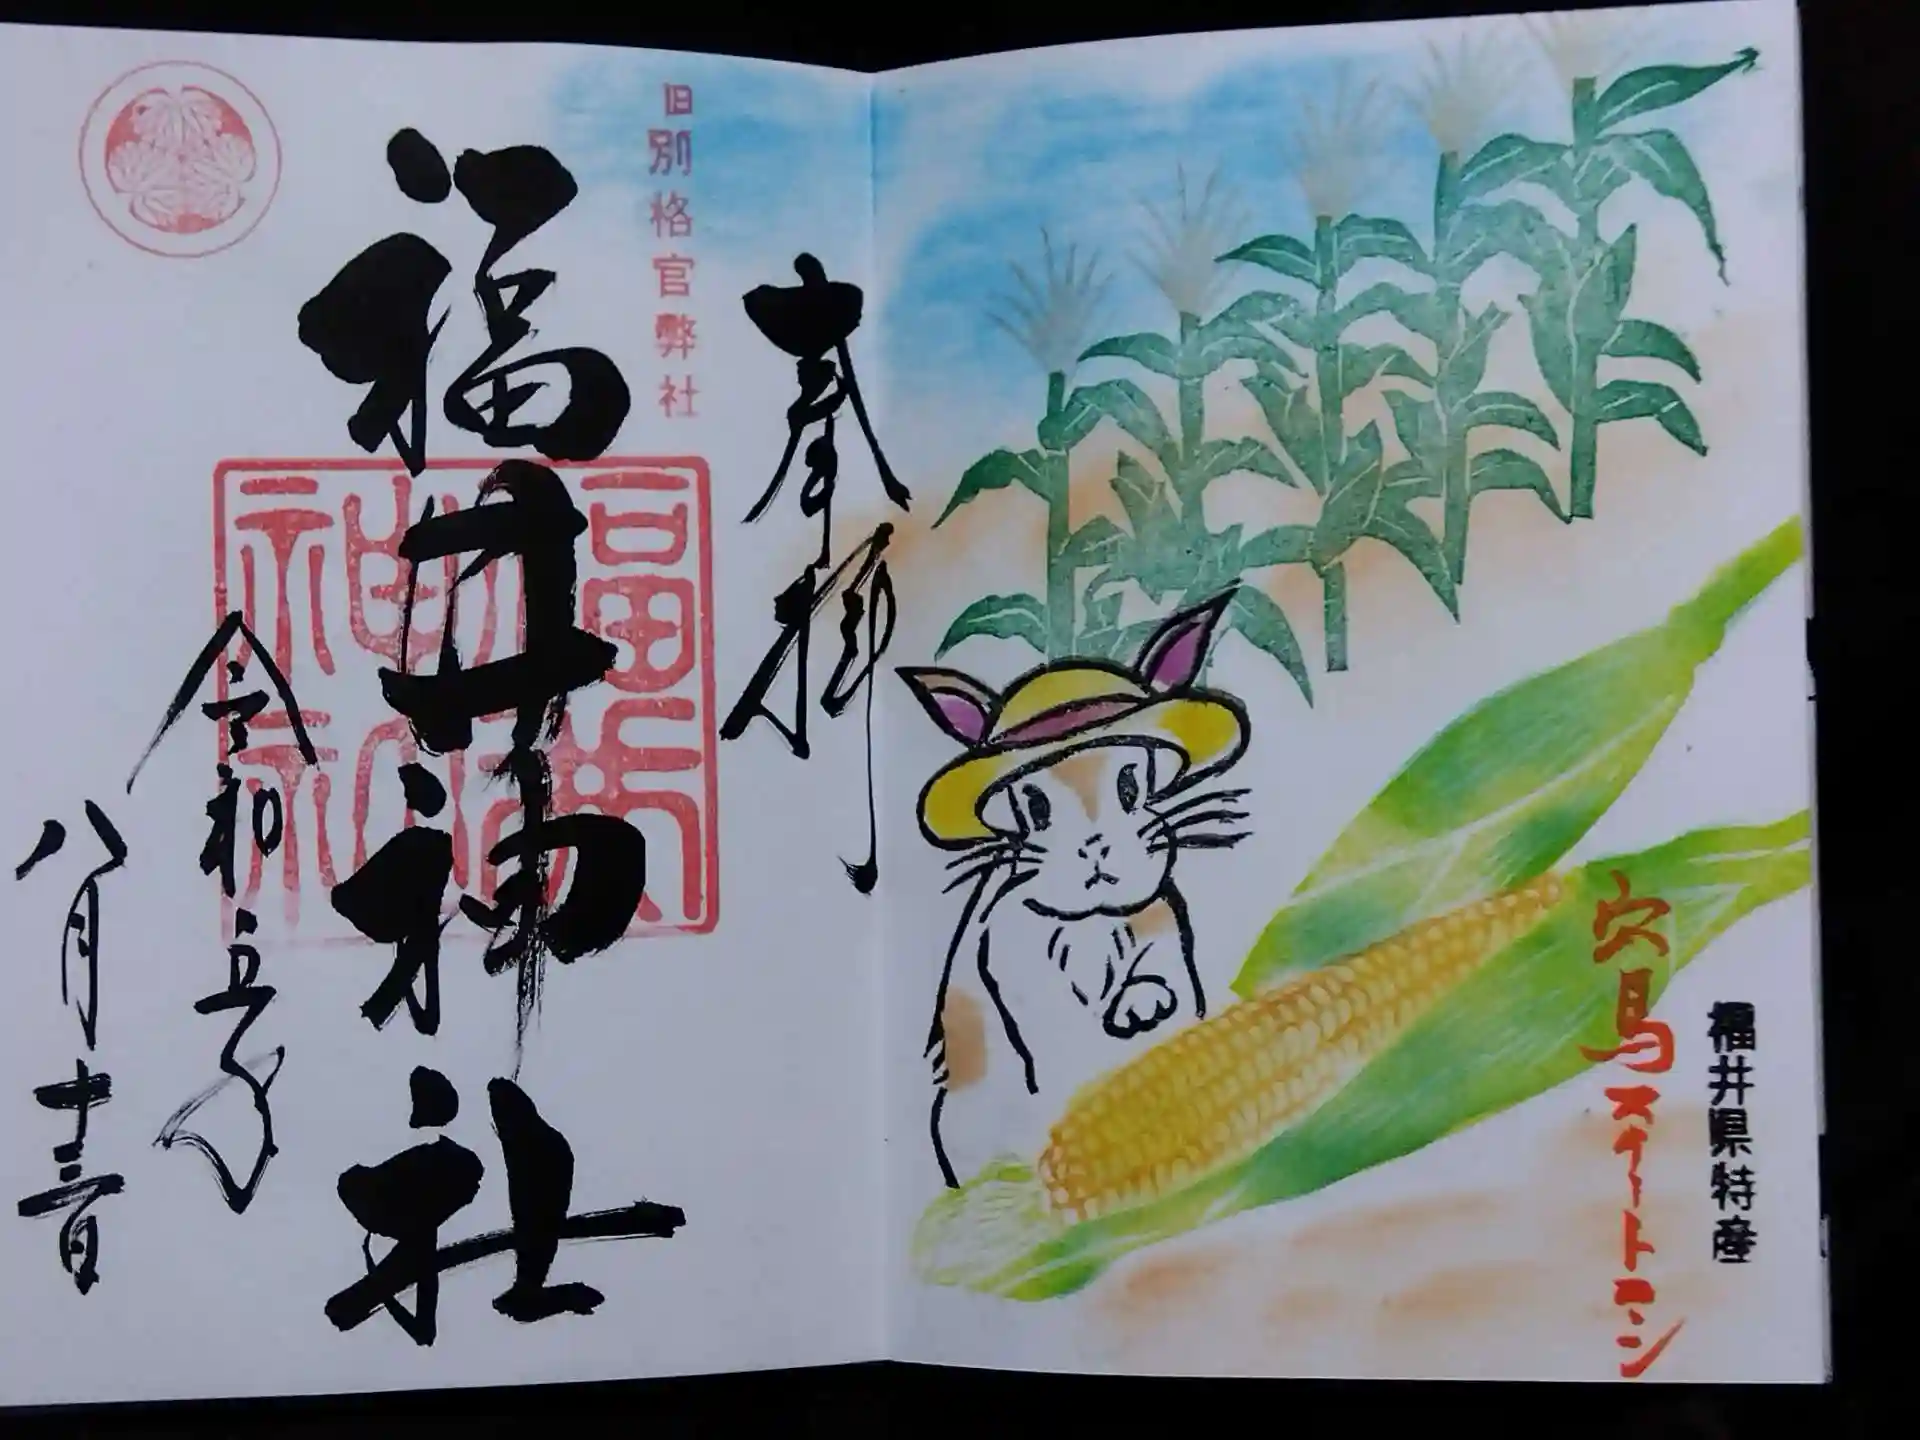 福井県特産
穴馬スイートコーン
奉拝
旧別格官弊社
福井神社
福井神社
令和五年
八月十三日